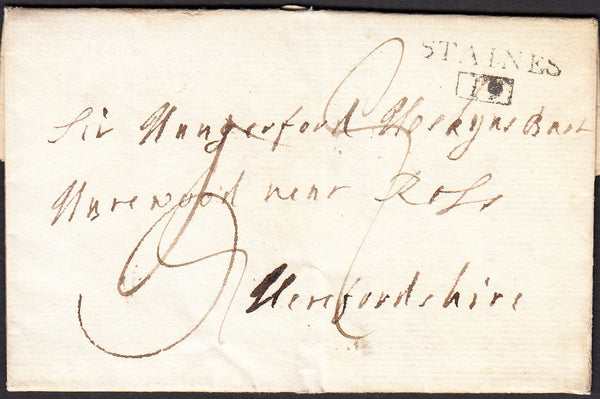 STAINES
Sir Hungerford Hoskyns Bart
Harewood near Ross
Herefordshire